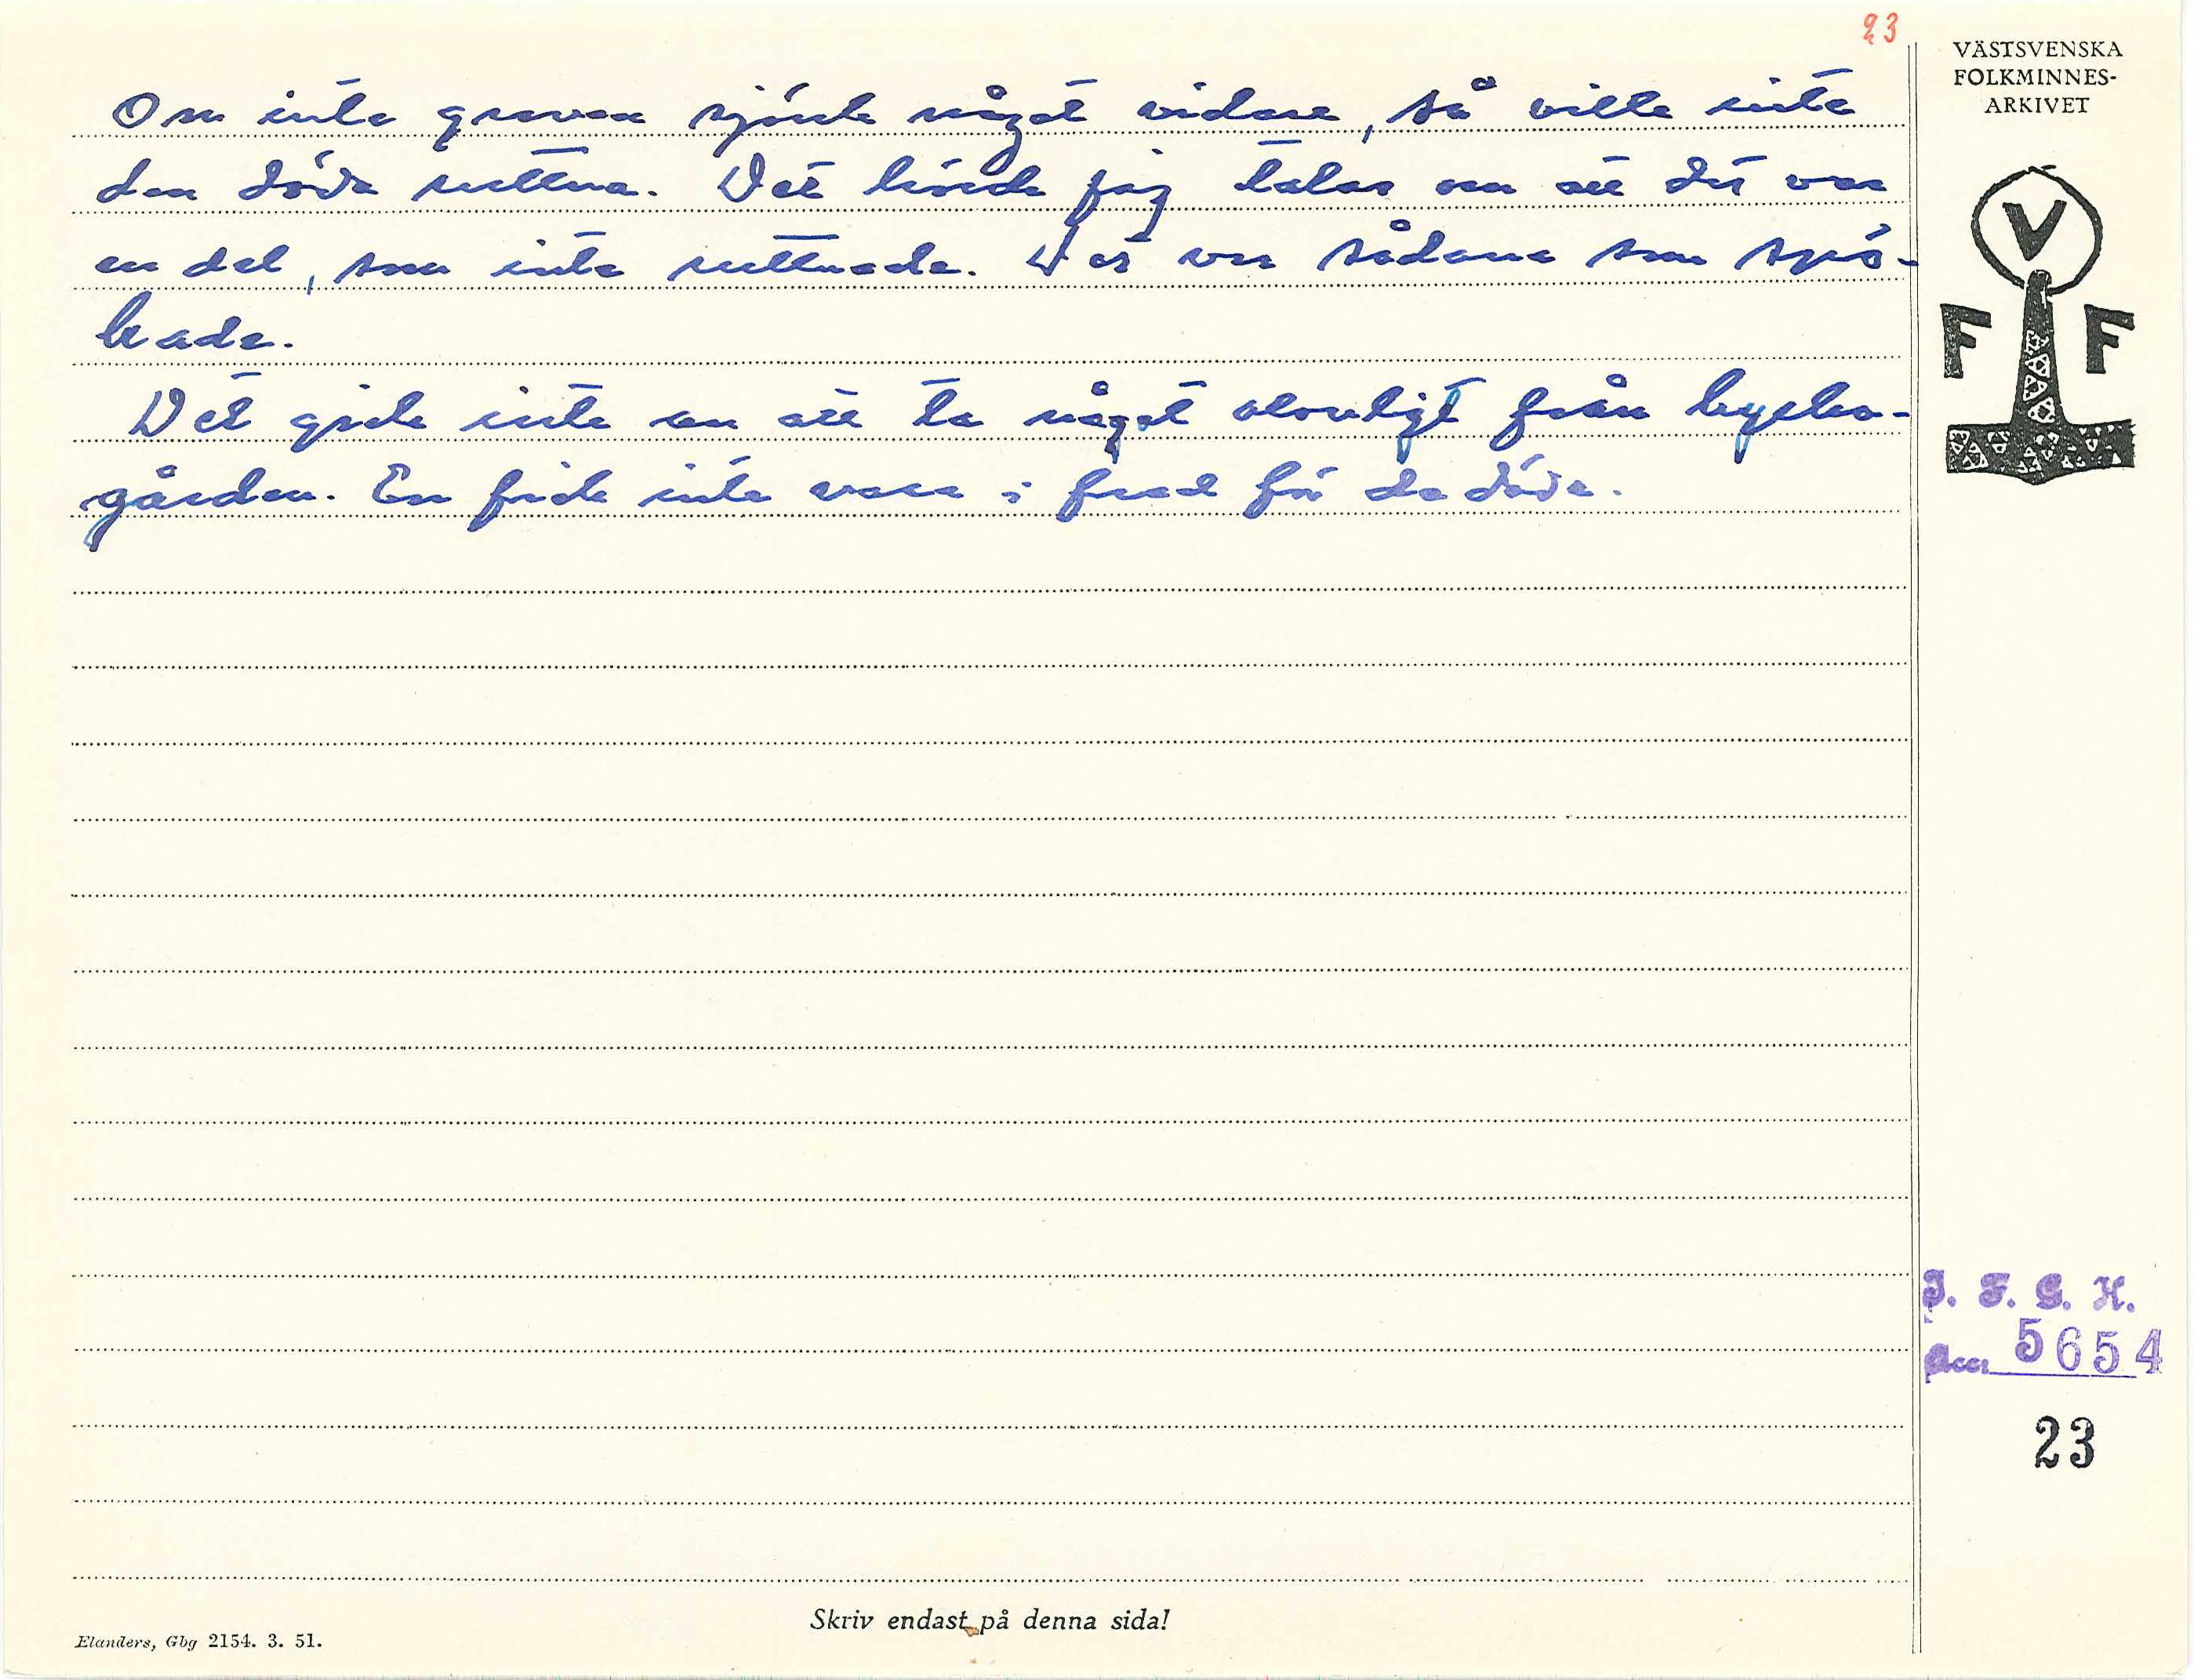 23
Om inte graven sjönk något vidare, så ville inte
den döde ruttna. Det hörde jag talas om att det var
en del, som inte ruttnade. Det var sådana som spö-
kade.
Det gick inte an att ta något olovligt från kyrko-
gården. En fick inte vara i fred för de döda.
VÄSTSVENSKA
FOLKMINNES-
ARKIVET
V
F F
I. F. G. H.
Acc. 5654
23
Skriv endast på denna sida!
Elanders, Gbg 2154. 3. 51.